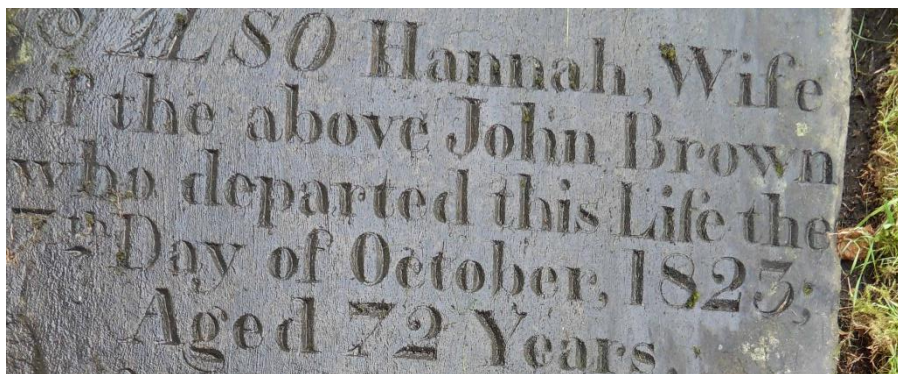 ALSO Hannah, Wife
of the above John Brown
who departed this Life the
7th Day of October, 1823;
Aged 72 Years.